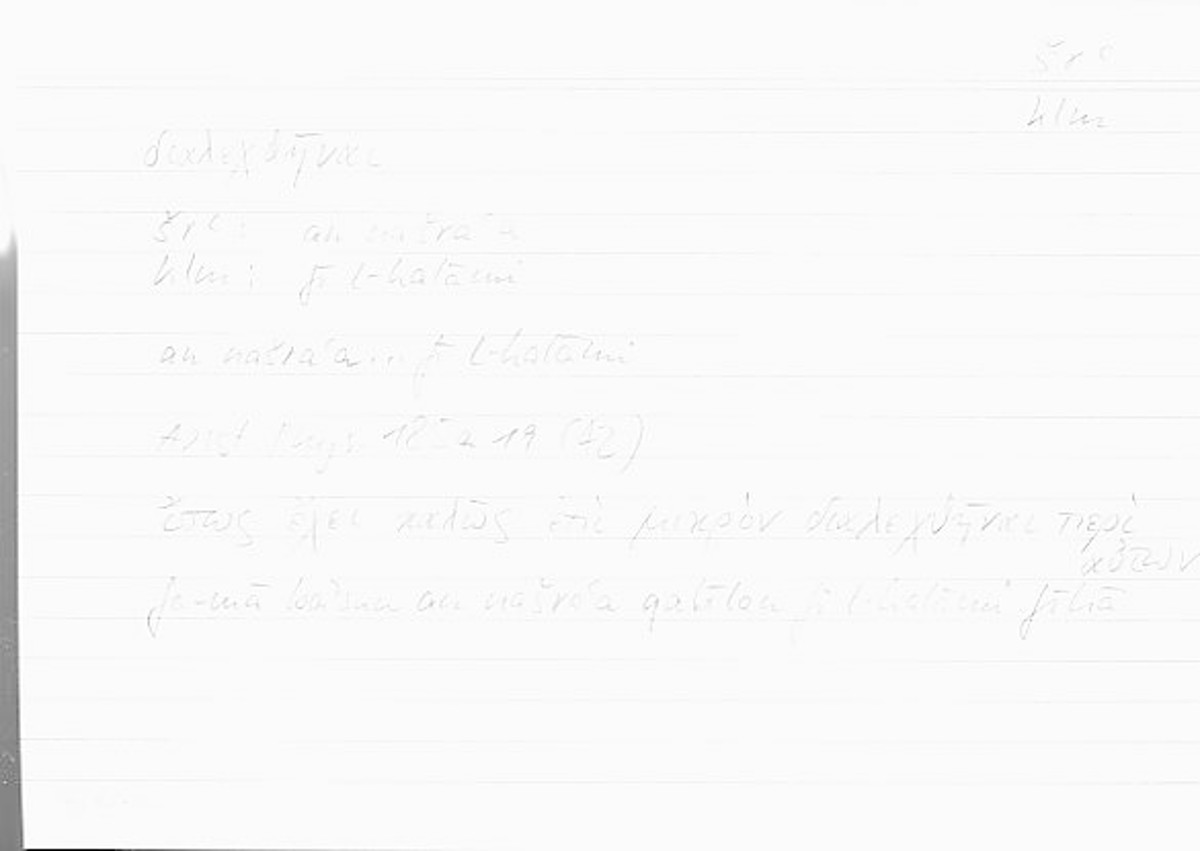 šrʿ
klm
διαλεχθῆναι
šrʿ: an našraʿa
klm: fī l-kalāmi
an našraʿa... fī l-kalāmi
Arist Phys. 185a 19 (A2)
ἴσως ἔχει καλῶς ἐπὶ μικρὸν διαλεχθῆναι περὶ
αὐτῶν
fa-mā baʾsun an našraʿa qalīlan fī l-kalāmi fīhā